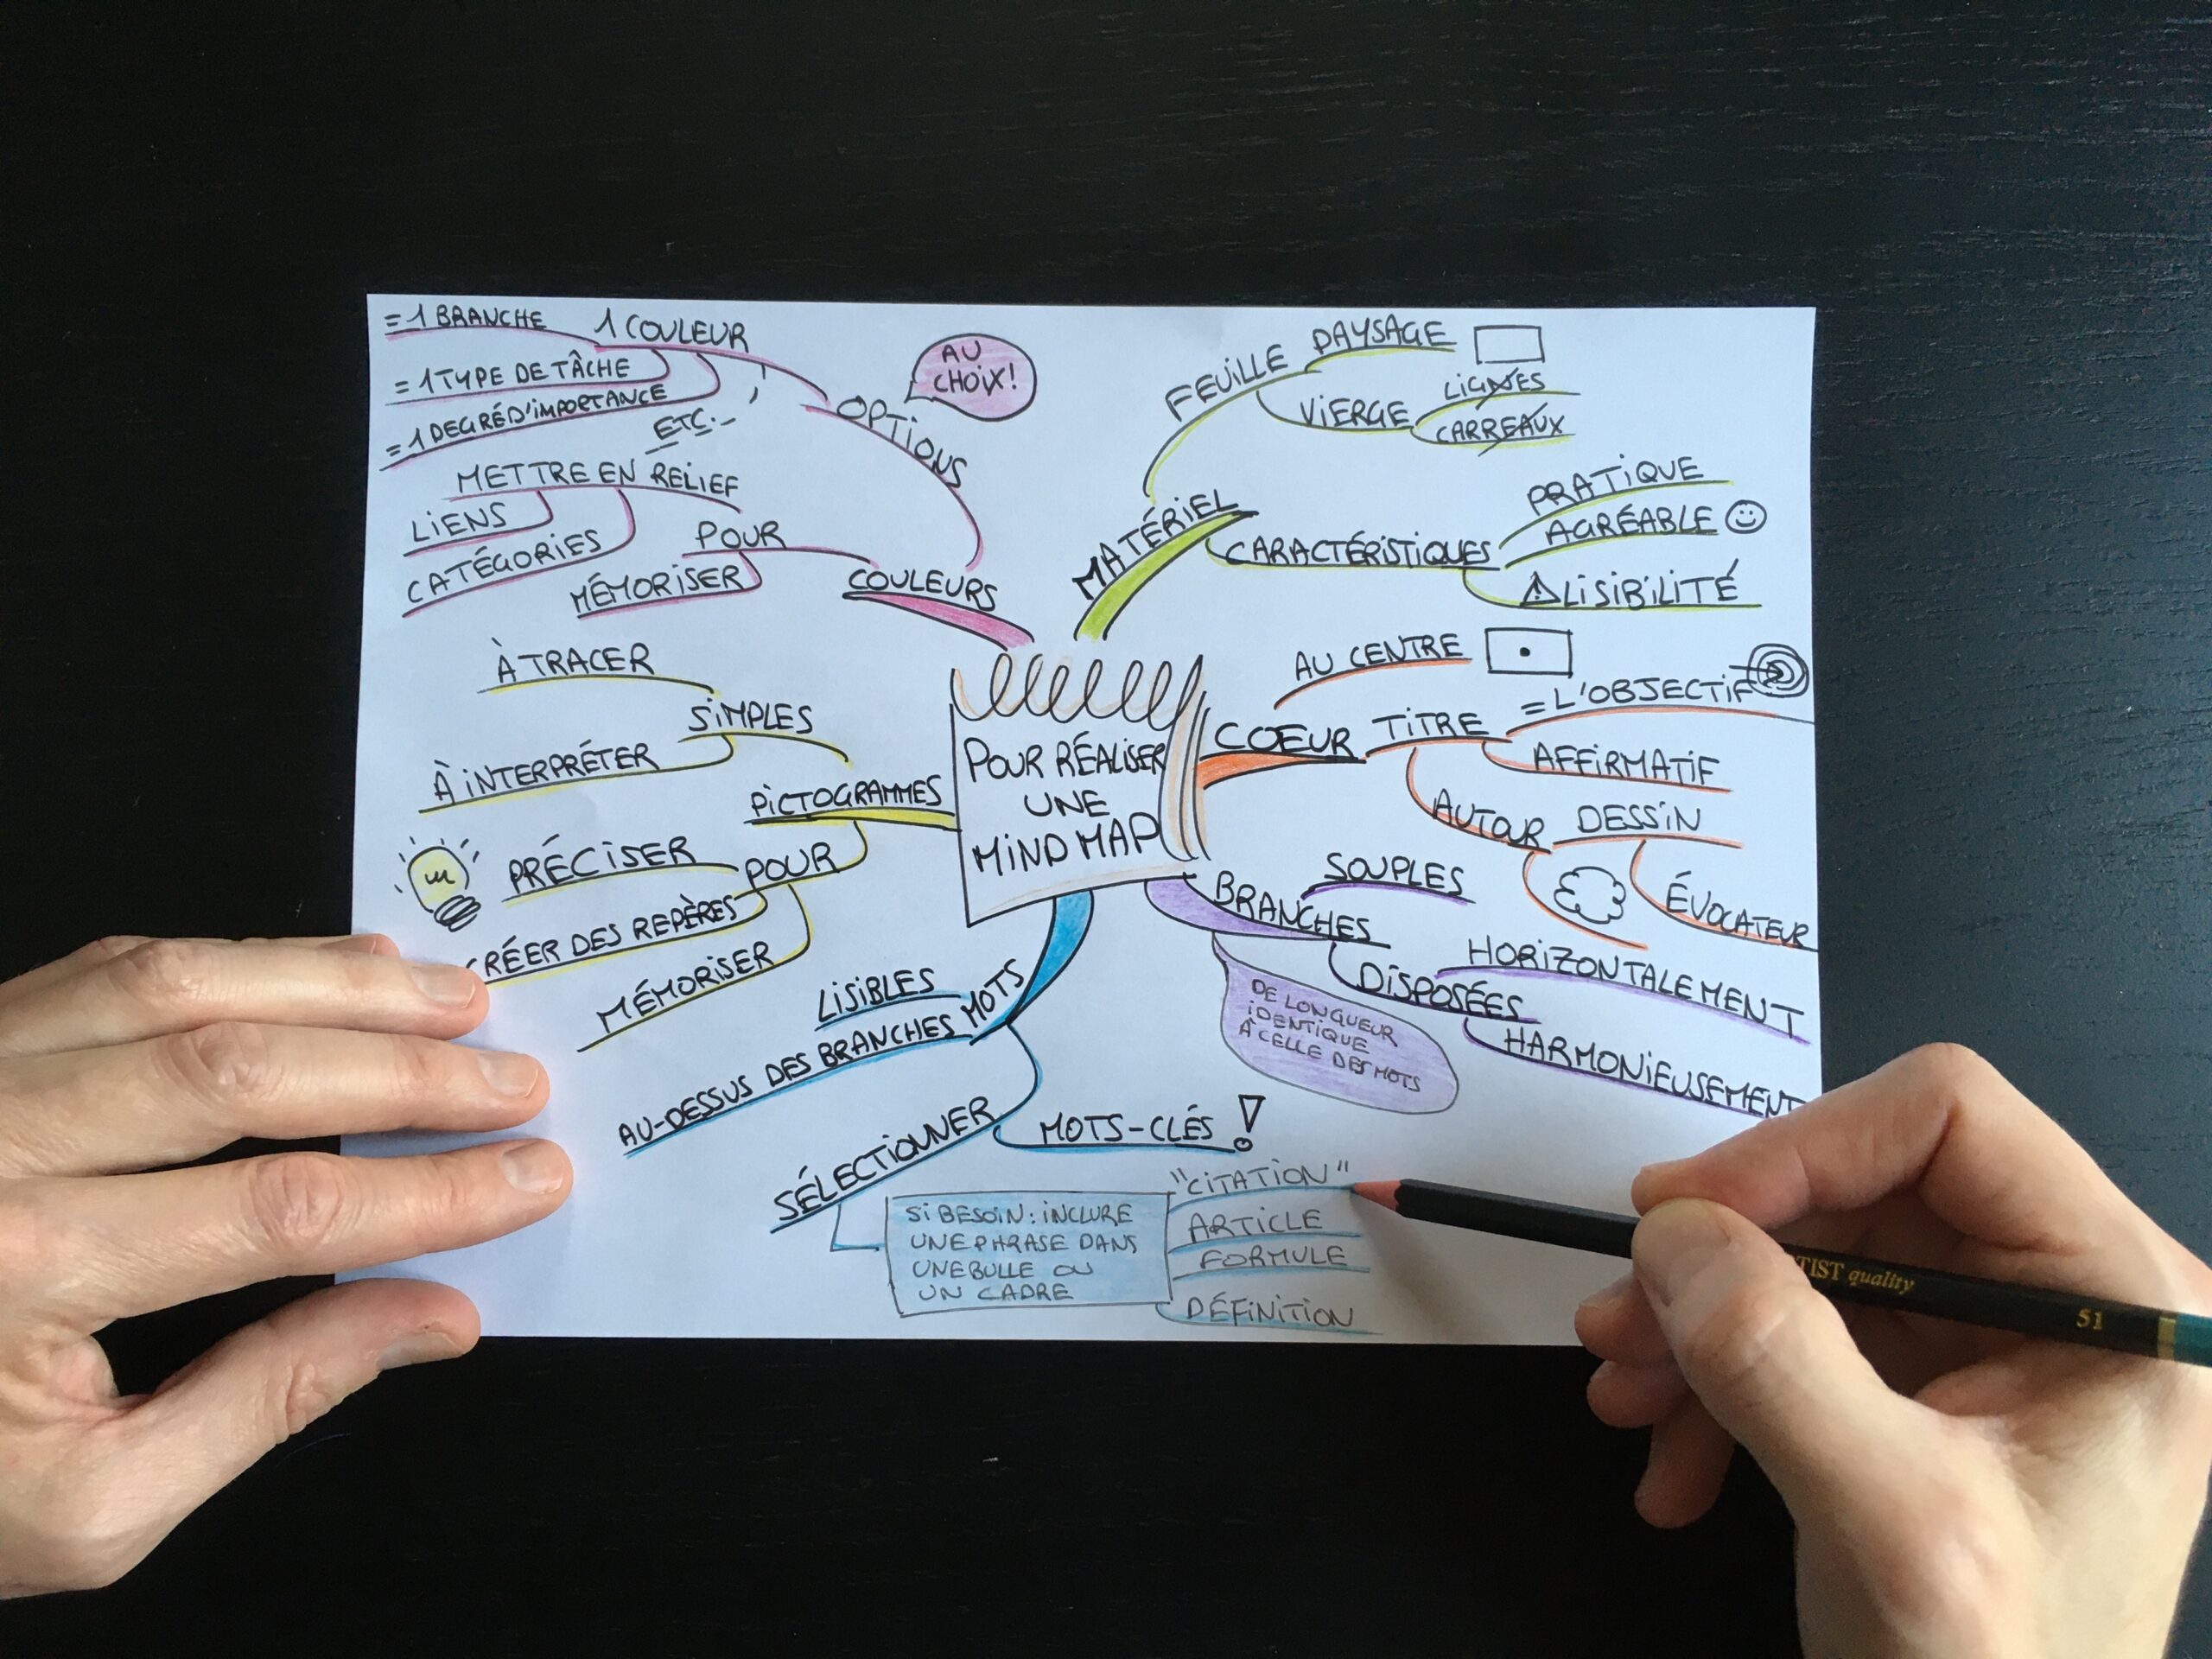 POUR RÉALISER
UNE
MIND MAP
MATÉRIEL
FEUILLE
PAYSAGE
VIERGE
LIGNES
CARREAUX
CARACTÉRISTIQUES
PRATIQUE
AGRÉABLE
LISIBILITÉ
COEUR
AU CENTRE
TITRE
= L'OBJECTIF
AFFIRMATIF
AUTOUR
DESSIN
ÉVOCATEUR
BRANCHES
SOUPLES
DISPOSÉES
HORIZONTALEMENT
HARMONIEUSEMENT
DE LONGUEUR
IDENTIQUE
À CELLE DES MOTS
MOTS
LISIBLES
AU-DESSUS DES BRANCHES
SÉLECTIONNER
MOTS-CLÉS !
SI BESOIN : INCLURE
UNE PHRASE DANS
UNE BULLE OU
UN CADRE
"CITATION"
ARTICLE
FORMULE
DÉFINITION
PICTOGRAMMES
SIMPLES
À TRACER
À INTERPRÉTER
POUR
PRÉCISER
CRÉER DES REPÈRES
MÉMORISER
COULEURS
OPTIONS
AU
CHOIX !
1 COULEUR
= 1 BRANCHE
= 1 TYPE DE TÂCHE
= 1 DEGRÉ D'IMPORTANCE
ETC.
POUR
METTRE EN RELIEF
LIENS
CATÉGORIES
MÉMORISER
TIST quality
51